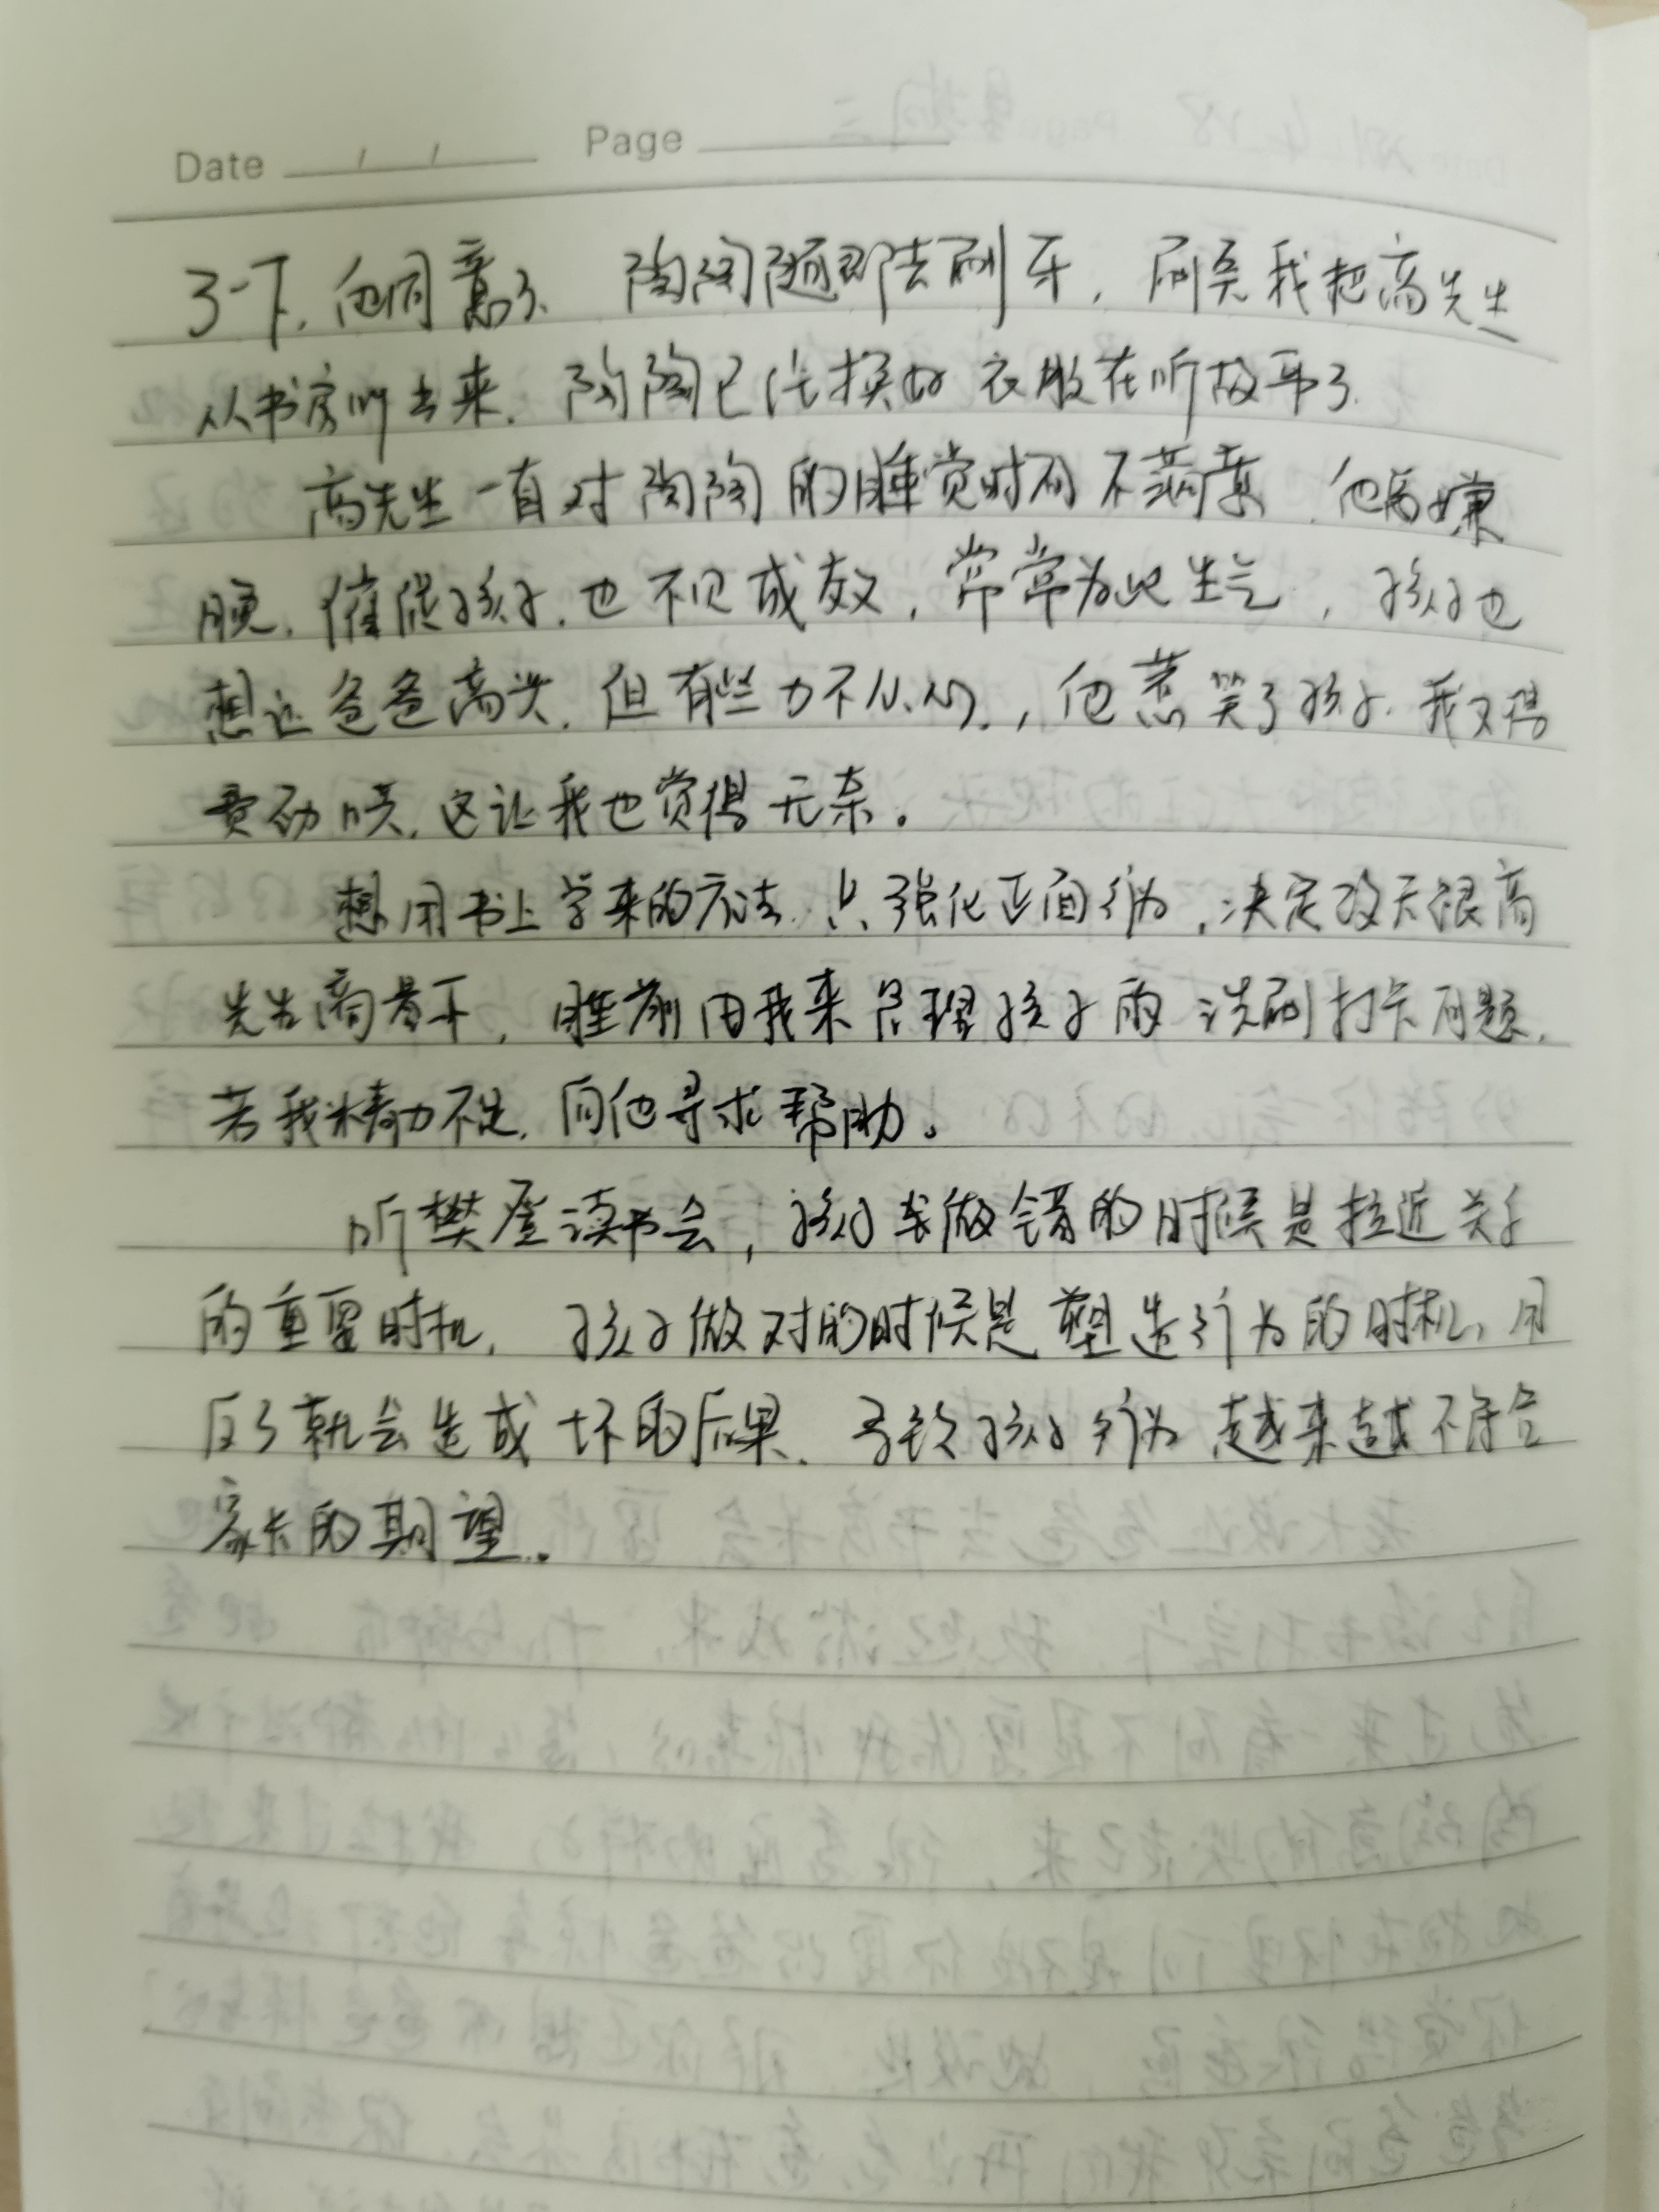 Date / / Page
了一下，他同意了、陶陶随即去刷牙，刷完我把高先生
从书房叫出来，陶陶已经换好衣服在听故事了.
高先生一直对陶陶的睡觉时间不满意，他总嫌
晚，催促孩子，也不见成效，常常为此生气，孩子也
想让爸爸高兴，但有些力不从心，他惹哭了孩子，我又得
费劲哄，这让我也觉得无奈。
想用书上学来的方法，只强化正面行为，决定改天跟高
先生商量下，睡前由我来管理孩子的洗刷打卡问题，
若我精力不足，向他寻求帮助。
听樊登读书会，孩子做错的时候是拉近关系
的重要时机，孩子做对的时候是塑造行为的时机，用
反了就会造成坏的后果，导致孩子行为越来越不符合
家长的期望。